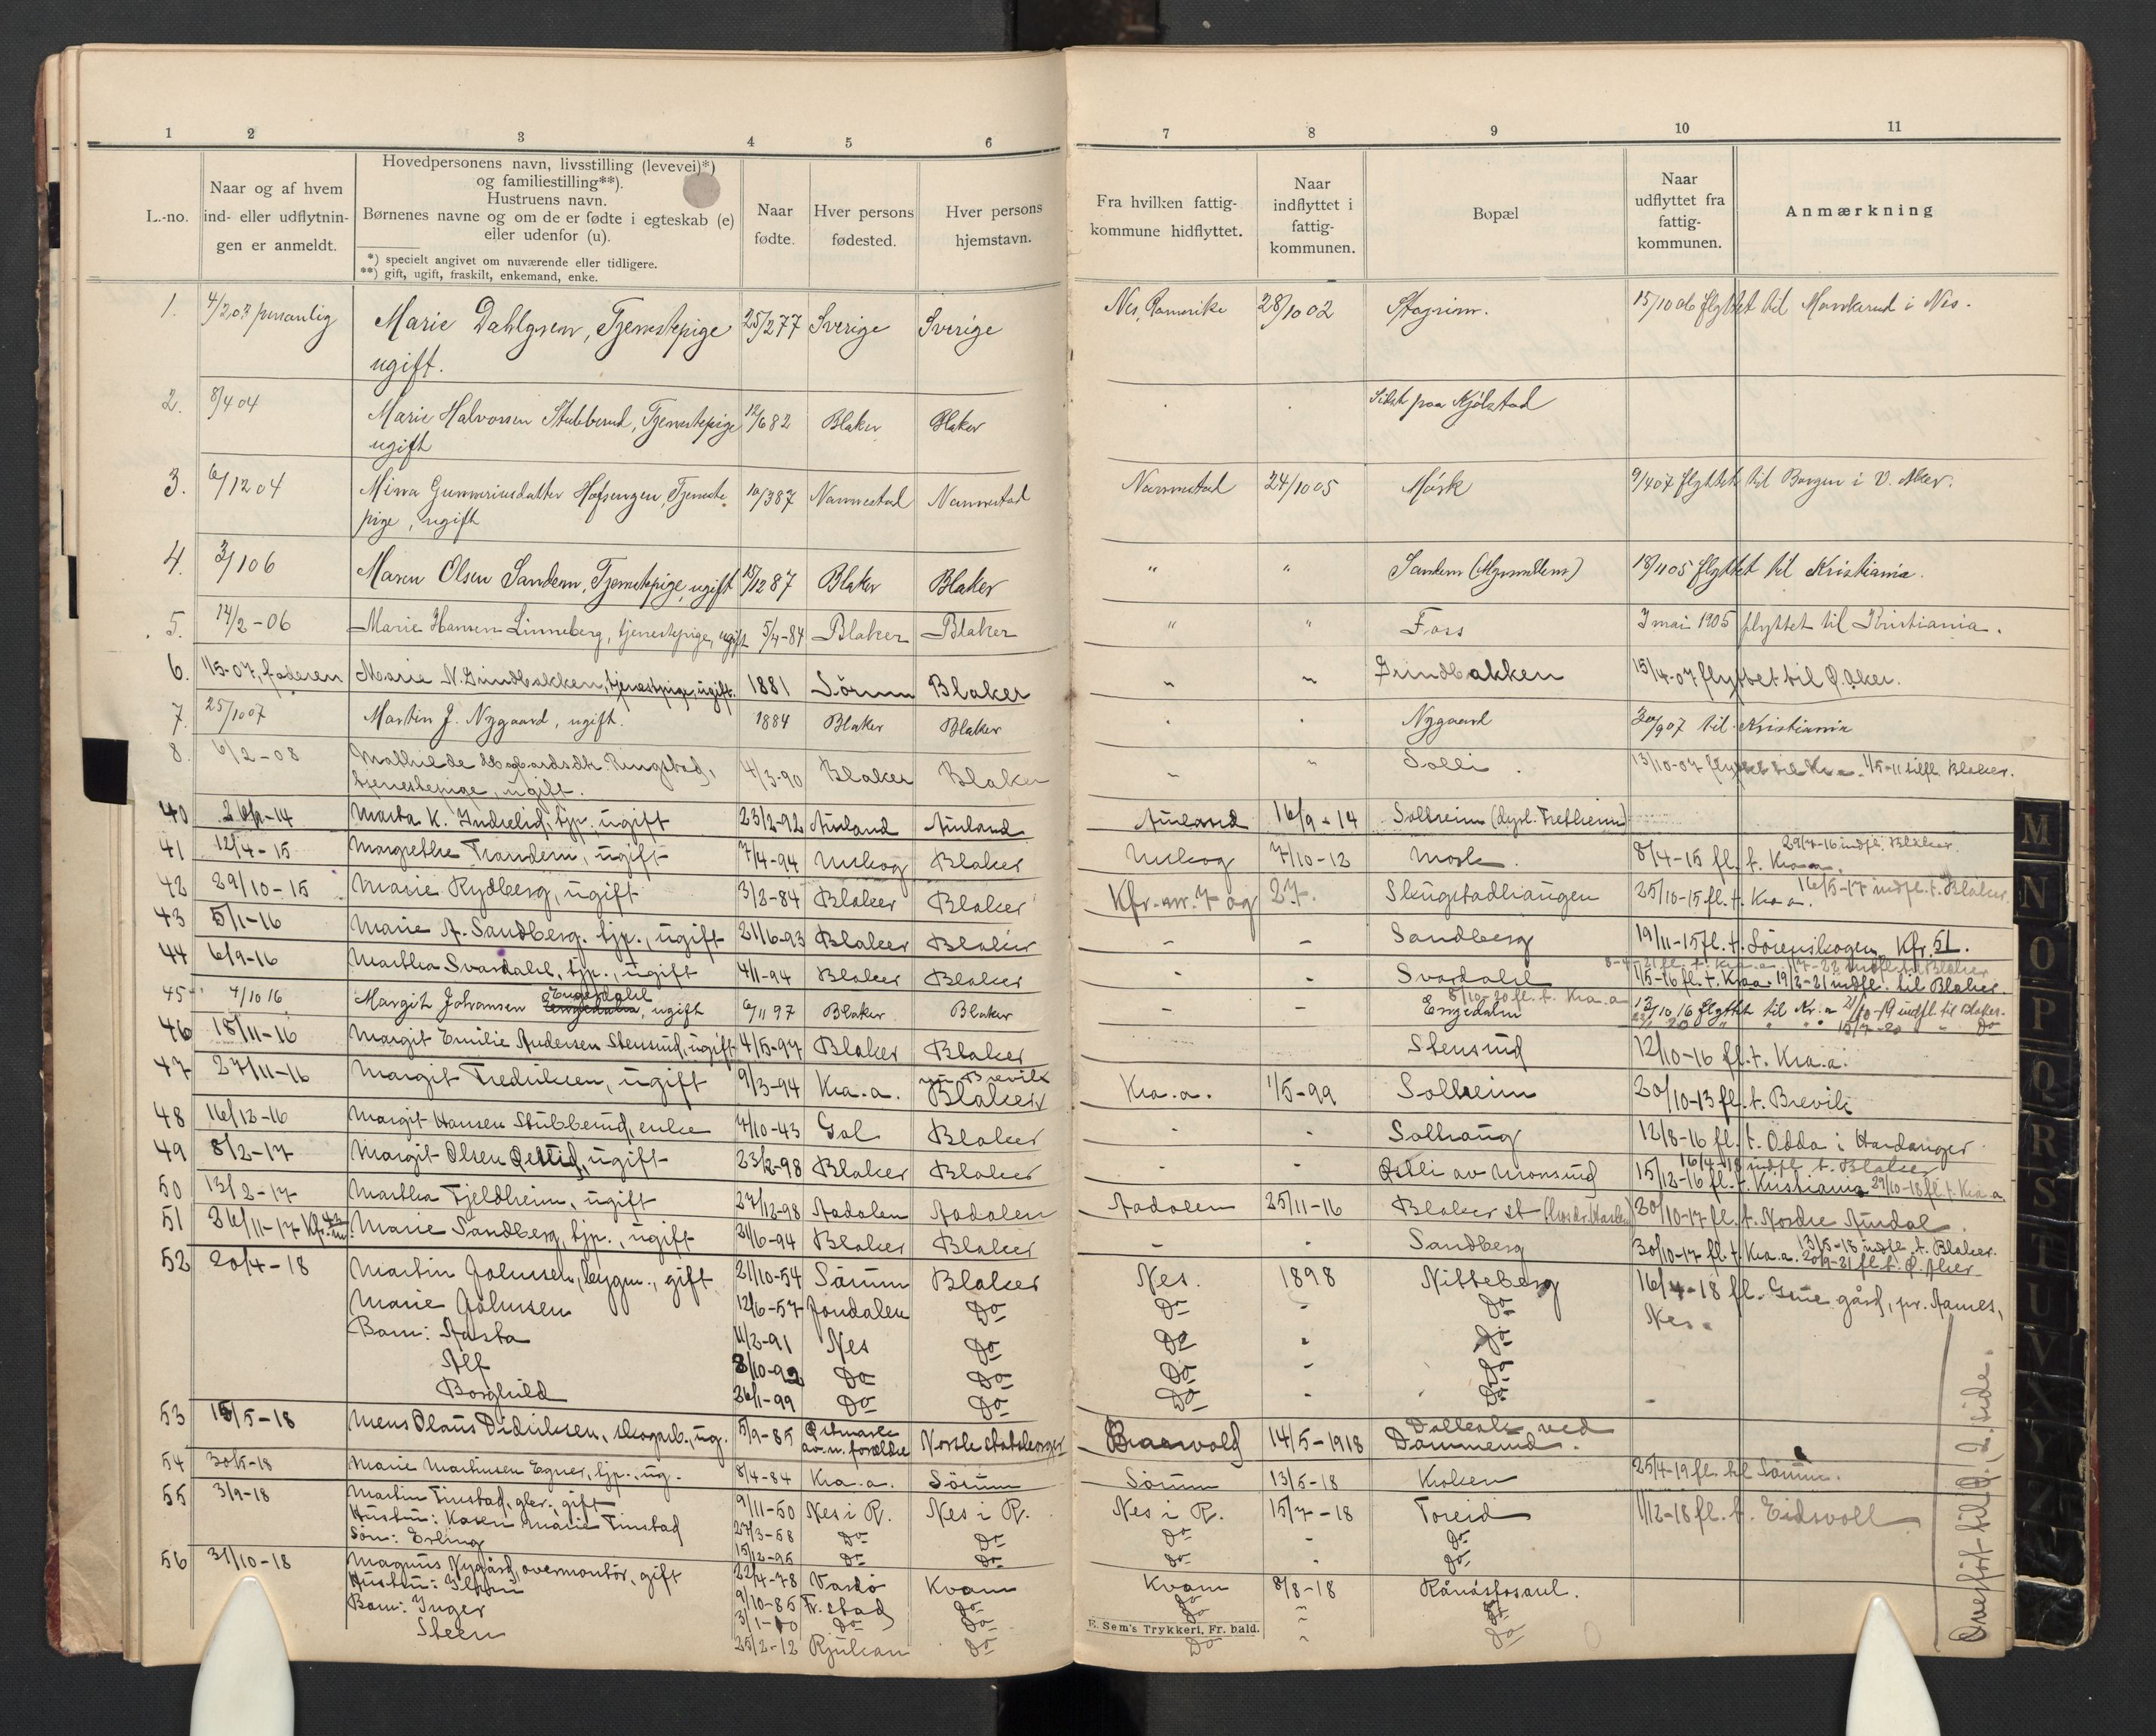 1 2 3 4 5 6 7 8 9 10 11
L.-no.
Naar og af hvem
ind- eller udflytnin-
gen er anmeldt.
Hovedpersonens navn, livsstilling (levevei)*)
og familiestilling**).
Hustruens navn.
Børnenes navne og om de er fødte i egteskab (e)
eller udenfor (u).
*) specielt angivet om nuværende eller tidligere.
**) gift, ugift, fraskilt, enkemand, enke.
Naar
fødte.
Hver persons
fødested.
Hver persons
hjemstavn.
Fra hvilken fattig-
kommune hidflyttet.
Naar
indflyttet i
fattig-
kommunen.
Bopæl
Naar
udflyttet fra
fattig-
kommunen.
Anmærkning
1. 4/2 03 personlig Marie Dahlgren, Tjenestepige 25/2 77 Sverige Sverige Nes, Romerike 28/10 02 15/10 06 flyttet til i Nes.
ugift.
2. 8/4 04 Marie Halvorsen Stubberud, Tjenestepige 12/6 82 Blaker Blaker Sidst paa Kjölstad
ugift
3. 6/12 04 Mina Gunneriusdatter Hofsengen, Tjeneste 10/3 87 Nannestad Nannestad Nannestad 24/10 05 Mörk 9/4 07 flyttet til Borgen i V. Aker.
pige, ugift
4. 3/1 06 Maren Olsen Sandem, Tjenestepige, ugift 15/12 87 Blaker Blaker " " Sandem 18/11 05 flyttet til Kristiania.
5. 14/2-06 Marie Hansen Linneberg, tjenestepige, ugift 5/4-84 Blaker Blaker " " Foss 3 mai 1905 flyttet til Kristiania.
6. 1/5-07, faderen Marie N. Grindbakken, tjenestepige, ugift. 1881 Sörum Blaker " " Grindbakken 15/4-07 flyttet til Ø. Aker.
7. 25/10 07 Martin J. Nygaard, ugift. 1884 Blaker Blaker Nygaard 30/9 07 til Kristiania
8. 6/2-08 Mathilde Ringstad, 4/3-90 Blaker Blaker " " Solli 13/10-07 flyttet til Kr.a. 1/5-11 tilfl. Blaker.
tjenestepige, ugift.
40 Marta K. Indrelid, tjp., ugift 23/2-92 Aurland Aurland Aurland 16/9-14 Solheim
41 12/4-15 Margrethe Trandem, ugift 7/4-94 Urskog Blaker Urskog 7/10-12 Mork 8/4-15 fl. t. Kra.a. 29/7-16 indfl. Blaker.
42 29/10-15 Marie Rydberg, ugift 3/2-84 Blaker Blaker Kfr. nr. 7 og 27. Skugstadhaugen 25/10-15 fl. t. Kra a. 16/5-17 indfl. t. Blaker.
43 5/1-16 Marie A. Sandberg, tjp., ugift 21/6-93 Blaker Blaker - - Sandberg 19/11-15 fl. t. Kfr. 51.
44 6/9-16 Martha Svardahl, tjp., ugift 4/1-94 Blaker Blaker - - Svardahl 1/5-16 fl. t. Kra.a. 19/2-21 indfl. til Blaker.
45 7/10 16 Margit Johansen Engerdahl, ugift 6/11 97 Blaker Blaker - - Engedahl 13/10 16 flyttet til Kr.a 21/10-19 indfl. til Blaker.
46 18/11-16 Margit Emilie Andersen Stensrud, ugift 4/5-97 Blaker Blaker Stensrud 12/10-16 fl. t. Kra.a.
47 27/11-16 Margit Fredriksen, ugift 9/3-94 Kra.a. Blaker Kra.a. 1/5-99 Solheim 20/10-13 fl. t. Brevik
48 16/12-16 Margit Hansen Stubberud, enke 7/10-43 Gol Blaker - - Solhaug 12/8-16 fl. t. Odda i Hardanger
49 8/2-17 Margit Olsen Østlid, ugift 23/2-98 Blaker Blaker - - Østli av Monsrud 15/12-16 fl. t. Kristiania 29/10-18 fl. t. Kra.a.
16/4-18 indfl. t. Blaker
50 13/2-17 Martha Fjeldheim, ugift 27/12-98 Aadalen Aadalen Aadalen 25/11-16 Blaker st 20/10-17 fl. t. Nordre Aurdal.
51 26/11-17 Kfr. 43 Marie Sandberg, tjp., ugift 21/6-94 Blaker Blaker - - Sandberg 30/10-17 fl. t. Kra.a. 13/5-18 indfl. t. Blaker.
20/9-21 fl. t. Ø. Aker
52 20/4-18 Martin Johnsen, bygm., gift 21/10-54 Sörum Blaker Nes. 1898 Nitteberg 16/4-18 fl. Grue gård, pr. Aarnes,
Nes.
Marie Johnsen 12/6-57 Jondalen Do Do - Do
Barn: Aasta 11/2-91 Nes Do Do - Do
Alf 8/10-92 Do Do Do - Do
Borghild 26/1-99 Do Do Do - Do
53 15/5-18 Mens Olaus Didriksen, skogarb., ug. 5/9-85 Østmark Norsk statsborger 14/5-1918 ved
av n. forældre
54 30/5-18 Marie Martinsen Egner, tjp., ug. 8/4-84 Kra.a. Sörum Sörum 13/5-18 Kroken 25/4-19 fl. til Sörum.
55 3/9-18 Martin Finstad, gbr., gift 9/11-50 Nes i R. Nes i R. Nes i R. 15/7-18 Toreid 1/12-18 fl. t. Eidsvoll
Hustru: Karen Marie Finstad 27/3-58 Do Do Do - Do
Sön: Erling 15/12-95 Do Do Do - Do
56 31/10-18 Magnus Nygård, overmontör, gift 22/4-78 Vardö Kvam Kvam 8/8-18 Rånåsfos anl.
Hustru: 9/10-85 Fr.stad Do Do " Do
Barn: Inger 3/1-10 Do Do "
Steen 25/2-12 Rjukan Do Do " Do
E. Sem's Trykkeri, Fr. hald.
Overfört til 2. side.
M
N
O
P
Q
R
S
T
U
V
X
Y
Z